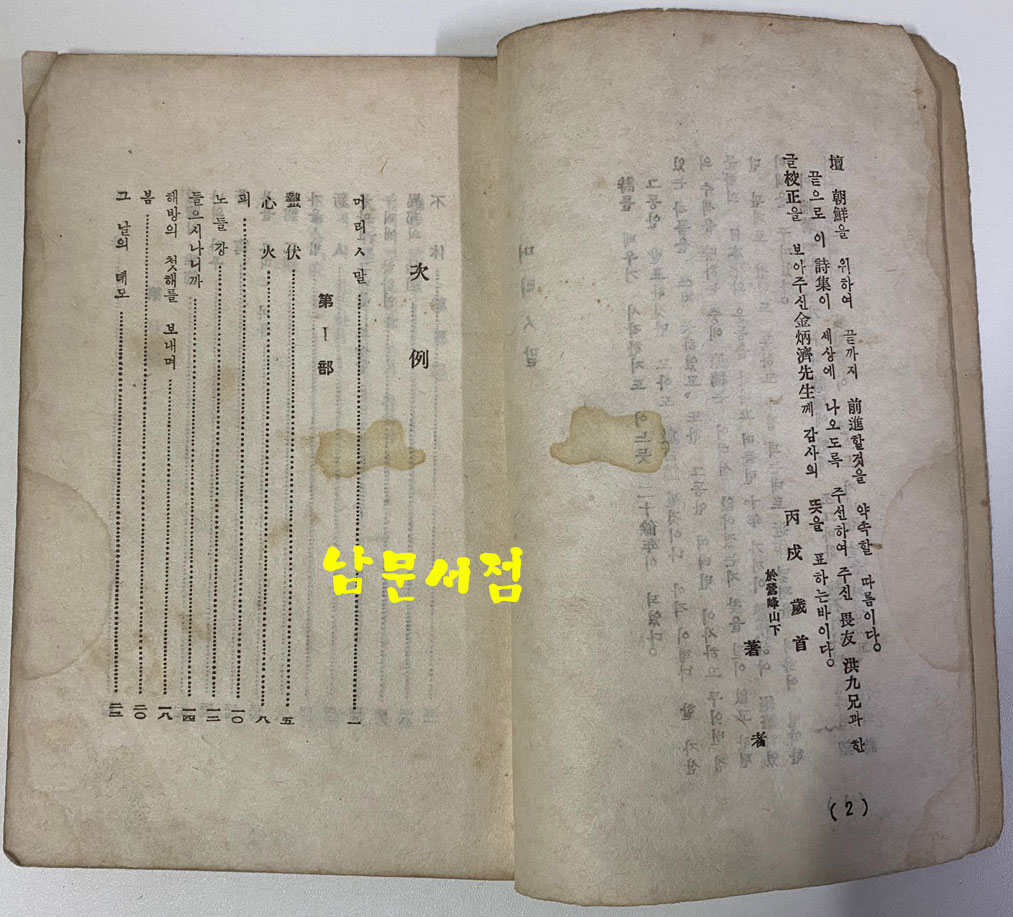 壇 朝鮮을 위하여 끝까지 前進할것을 약속할 따름이다。
끝으로 이 詩集이 세상에 나오도록 주선하여 주신 畏友 洪九兄과 한
글校正을 보아주신金炳濟先生께 감사의 뜻을 표하는바이다。
丙戌歲首
於鶯峰山下
著者
(2)
次例
머리ㅅ말……一
第Ⅰ部
蟄伏……五
心火……八
희……一〇
노들강……一二
들으시나니까……一四
해방의 첫해를 보내며……一八
봄……二〇
그 날의 데모……二三
남문서점